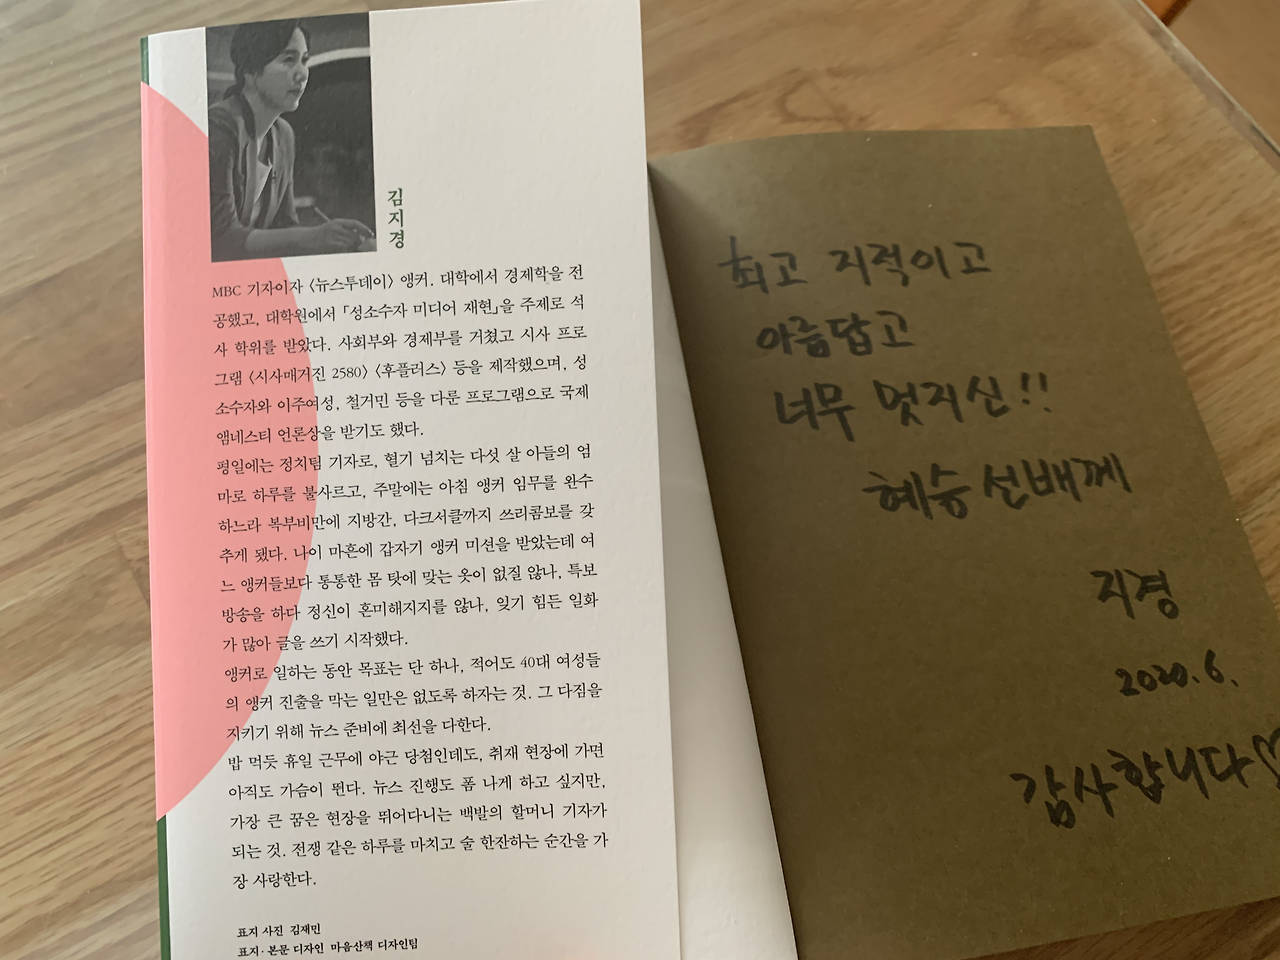 김지경
MBC 기자이자 〈뉴스투데이〉 앵커. 대학에서 경제학을 전
공했고, 대학원에서 「성소수자 미디어 재현」을 주제로 석
사 학위를 받았다. 사회부와 경제부를 거쳤고 시사 프로
그램 〈시사매거진 2580〉 〈후플러스〉 등을 제작했으며, 성
소수자와 이주여성, 철거민 등을 다룬 프로그램으로 국제
앰네스티 언론상을 받기도 했다.
평일에는 정치팀 기자로, 혈기 넘치는 다섯 살 아들의 엄
마로 하루를 불사르고, 주말에는 아침 앵커 임무를 완수
하느라 복부비만에 지방간, 다크서클까지 쓰리콤보를 갖
추게 됐다. 나이 마흔에 갑자기 앵커 미션을 받았는데 여
느 앵커들보다 통통한 몸 탓에 맞는 옷이 없질 않나, 특보
방송을 하다 정신이 혼미해지지를 않나, 잊기 힘든 일화
가 많아 글을 쓰기 시작했다.
앵커로 일하는 동안 목표는 단 하나, 적어도 40대 여성들
의 앵커 진출을 막는 일만은 없도록 하자는 것. 그 다짐을
지키기 위해 뉴스 준비에 최선을 다한다.
밥 먹듯 휴일 근무에 야근 당첨인데도, 취재 현장에 가면
아직도 가슴이 뛴다. 뉴스 진행도 폼 나게 하고 싶지만,
가장 큰 꿈은 현장을 뛰어다니는 백발의 할머니 기자가
되는 것. 전쟁 같은 하루를 마치고 술 한잔하는 순간을 가
장 사랑한다.
표지 사진 김재민
표지·본문 디자인 마음산책 디자인팀
최고 지적이고
아름답고
너무 멋지신!!
혜승 선배께
지경
2020. 6.
감사합니다♡